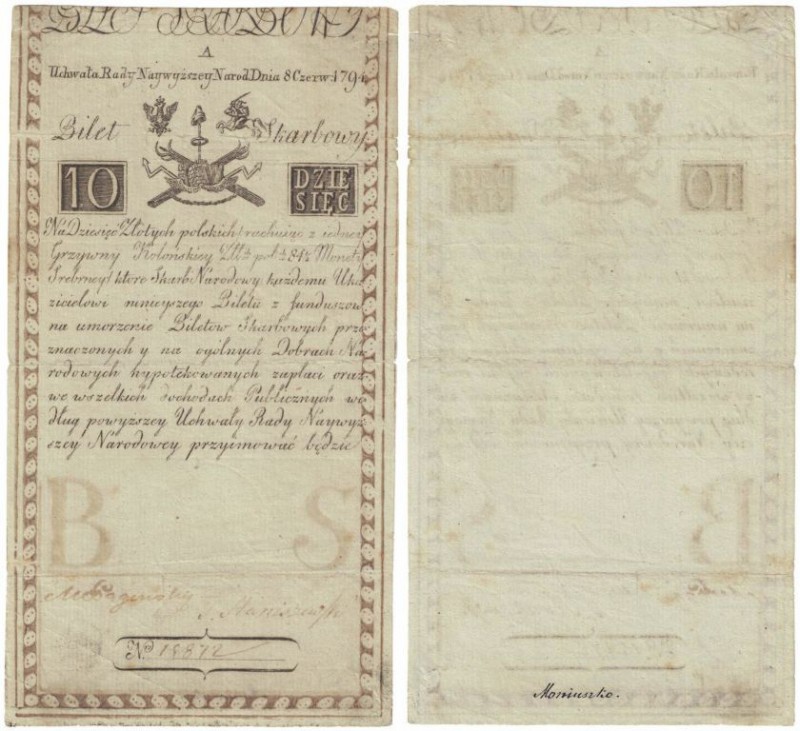 BILET SKARBOWY
A
Uchwała Rady Naywyższey Narod. Dnia 8 Czerw: 1794
Bilet Skarbowy
10 DZIE
SIĘĆ
Na Dziesięć Złotych polskich rachuiąc z iedney
Grzywny Kolońskiey Złt. pol. 84½ Monet
Srebrney, ktore Skarb Narodowy każdemu Uka
zicielowi mnieyszego Biletu z funduszow
na umorzenie Biletow Skarbowych prze
znaczonych y na ogólnych Dobrach Na
rodowych hypotekowanych zapłaci oraz
we wszelkich dochodach Publicznych we
dług powyższey Uchwały Rady Naywyż
szey Narodowey przyimować będzie
B S
No 18872
Moniuszko.